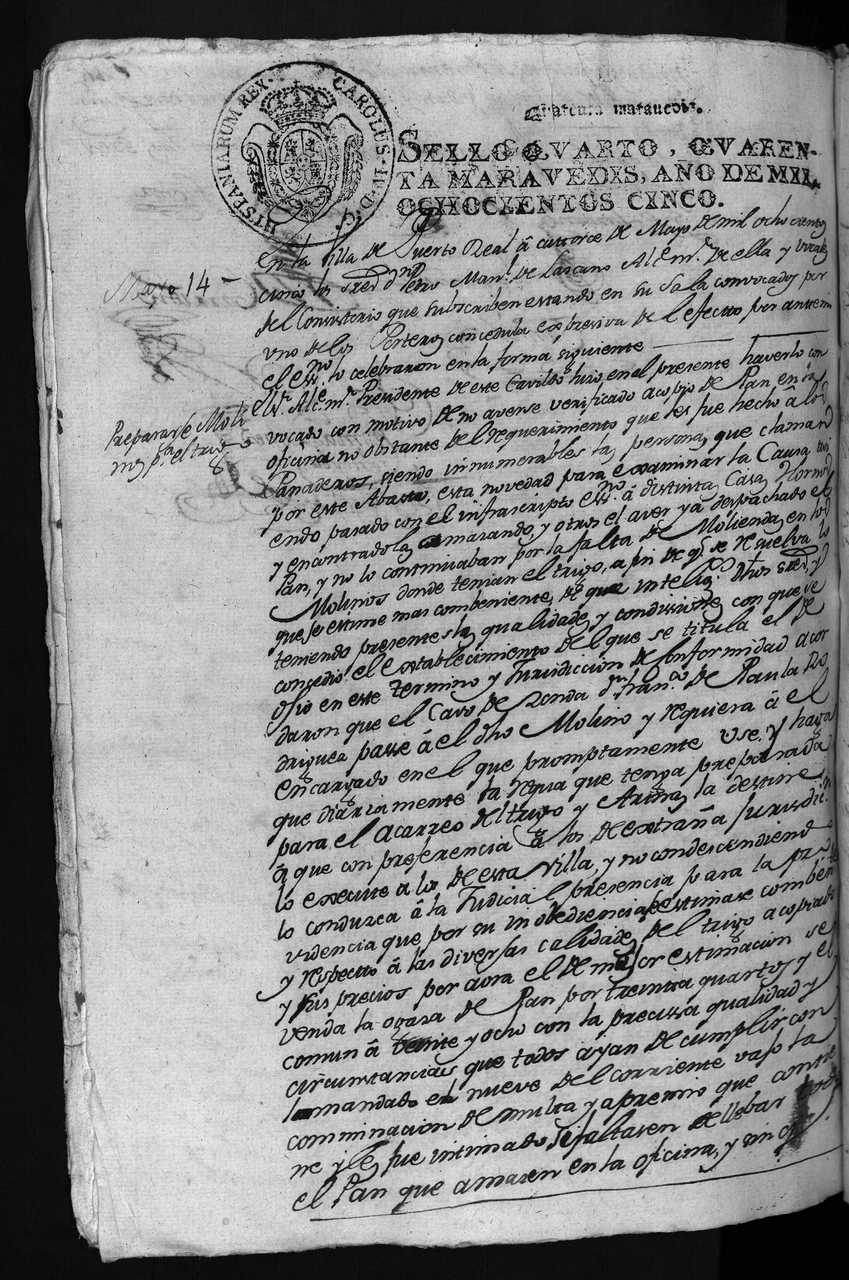 HISPANIARUM REX. CAROLUS. IV. D. G.
Quarenta maravedis.
SELLO QVARTO, QVAREN-
TA MARAVEDIS, AÑO DE MIL
OCHOCIENTOS CINCO.
Mayo 14 -
En la Villa de Puerto Real á catorce de Mayo de mil ocho cientos
cinco los Sres Dn Pedro Manl de Lascano Alce mr de ella y vocales
del Consistorio que subscriben estando en su Sala convocados por
uno de los Porteros con cedula expresiva del efecto por ante mi
el Esno lo celebraron en la forma siguiente
Prepararse Moli
nos pa el trigo
el Sr Alce mr Presidente de este Cavildo hizo en el presente haverlo con
vocado con motivo de no averse verificado acopio de Pan en la
oficina no obstante del requerimiento que les fue hecho á los
Panaderos, siendo innumerables las personas que claman
por este Abasto, esta novedad para examinar la Causa, avi
endo pasado con el infrascripto Esno á distintas Casas Hornos
y encontradolas amasando, y otros el aver ya despachado el
Pan, y no lo continuaban por la falta de Molienda en los
Molinos donde tenian el trigo, a fin de qe se resuelva lo
que se estime mas combeniente, de que inteligs dhos Sres, y
teniendo presentes las qualidades y condiciones con que se
consedio el establecimiento del que se titula el de
Osio en este termino y Jurisdiccion de Conformidad acor
daron que el Cavo de Ronda Dn Franco de Paula Ro
driguez passe á el dho Molino y requiera á el
encargado en el que promptamente use y haga
que diariamente la requa que tenga preparada
para el acarreo del trigo y Arinas la destine
á que con preferencia á los de extraña Jurisdicn
lo execute a los de esta Villa, y no condescendiendo
lo conduzca á la Judicial presencia para la pro
videncia que por su inobediencia se estimare combente
y respecto á las diversas calidades del trigo acopiado
y sus precios por aora el de mejor estimacion se
venda la ogasa de Pan por treinta quartos y el
comun á veinte y ocho con la precissa qualidad y
circunstancias que todos ayan de cumplir con
lo mandado en nueve del corriente vajo la
comminacion de multa y apremio que contie
ne y les fue intimado si faltasen de llebar todo
el Pan que amasen en la oficina, y sin